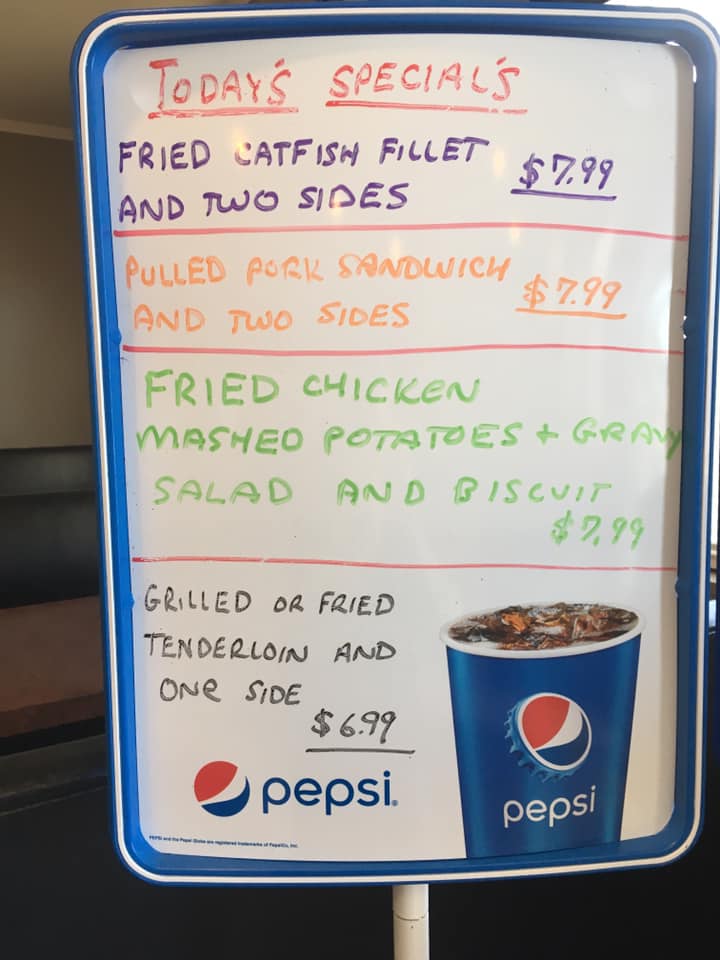 TODAY'S SPECIAL'S
FRIED CATFISH FILLET
AND TWO SIDES
$7.99
PULLED PORK SANDWICH
AND TWO SIDES
$7.99
FRIED CHICKEN
MASHED POTATOES + GRAVY
SALAD AND BISCUIT
$7.99
GRILLED OR FRIED
TENDERLOIN AND
ONE SIDE
$6.99
pepsi.
pepsi
PEPSI and the Pepsi Globe are registered trademarks of PepsiCo, Inc.